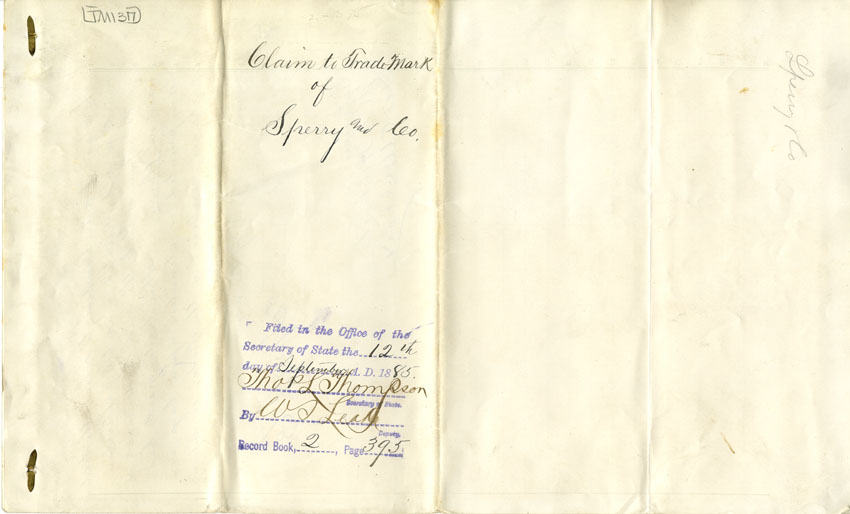 TM1317
Claim to Trade Mark
of
Sperry and Co.
Sperry & Co
Filed in the Office of the
Secretary of State the 12th
day of September A. D. 1885.
Thos L Thompson
Secretary of State.
By
Deputy.
Record Book, 2, Page 395.